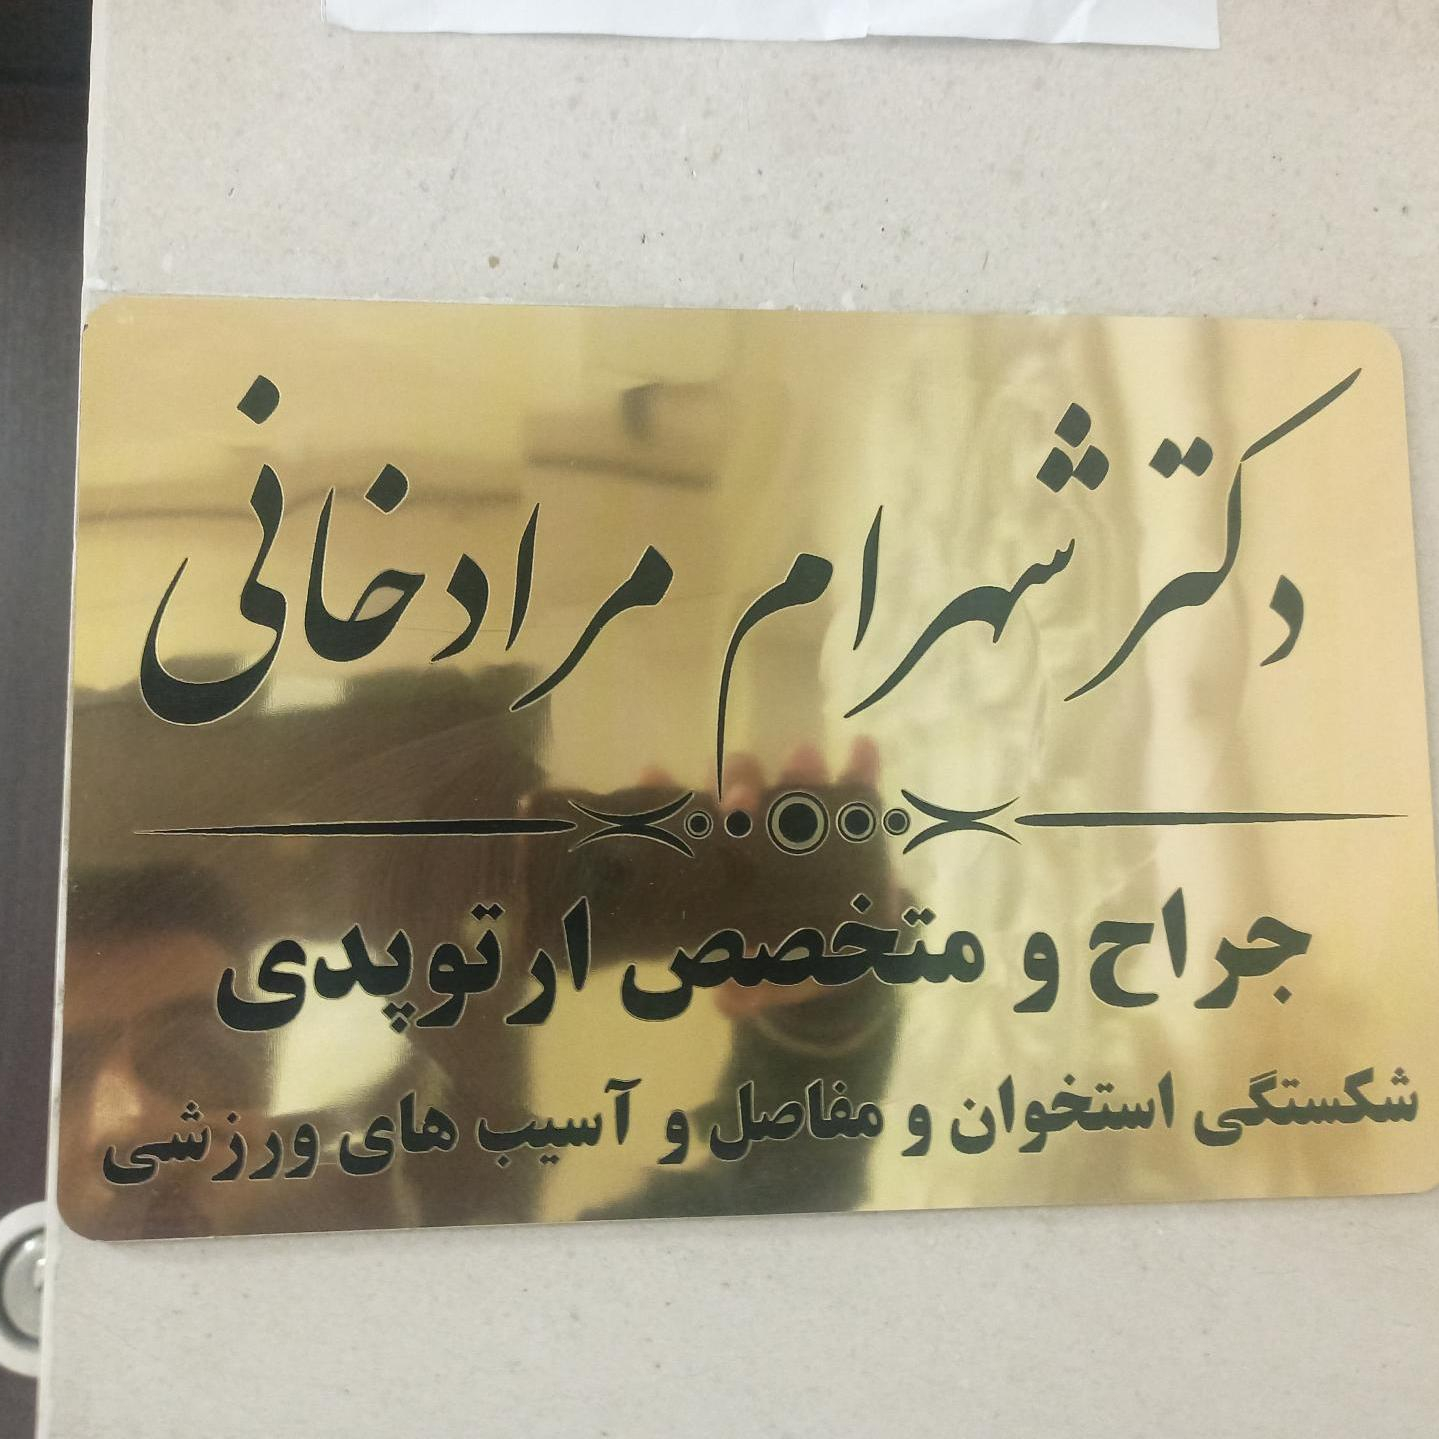 دکتر شهرام مرادخانی
جراح و متخصص ارتوپدی
شکستگی استخوان و مفاصل و آسیب های ورزشی